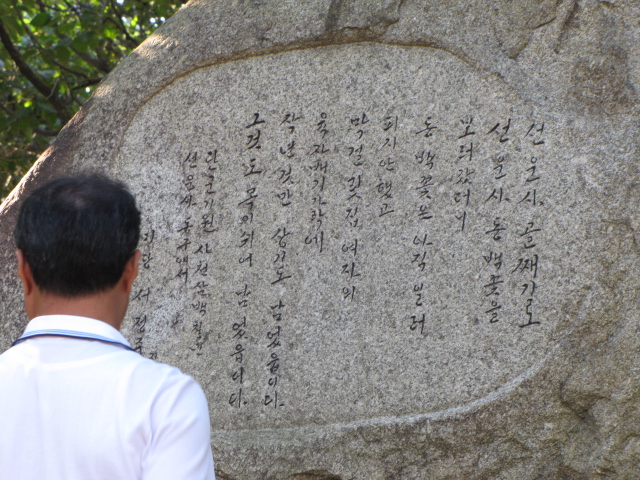 선운사 골째기로
선운사 동백꽃을
보러 갔더니
동백꽃은 아직 일러
피지 안했고
막걸릿집 여자의
육자배기 가락에
작년 것만 상기도 남었읍니다.
그것도 목이 쉬어 남었읍니다.
단군기원 사천삼백칠년
선운사 동구에서